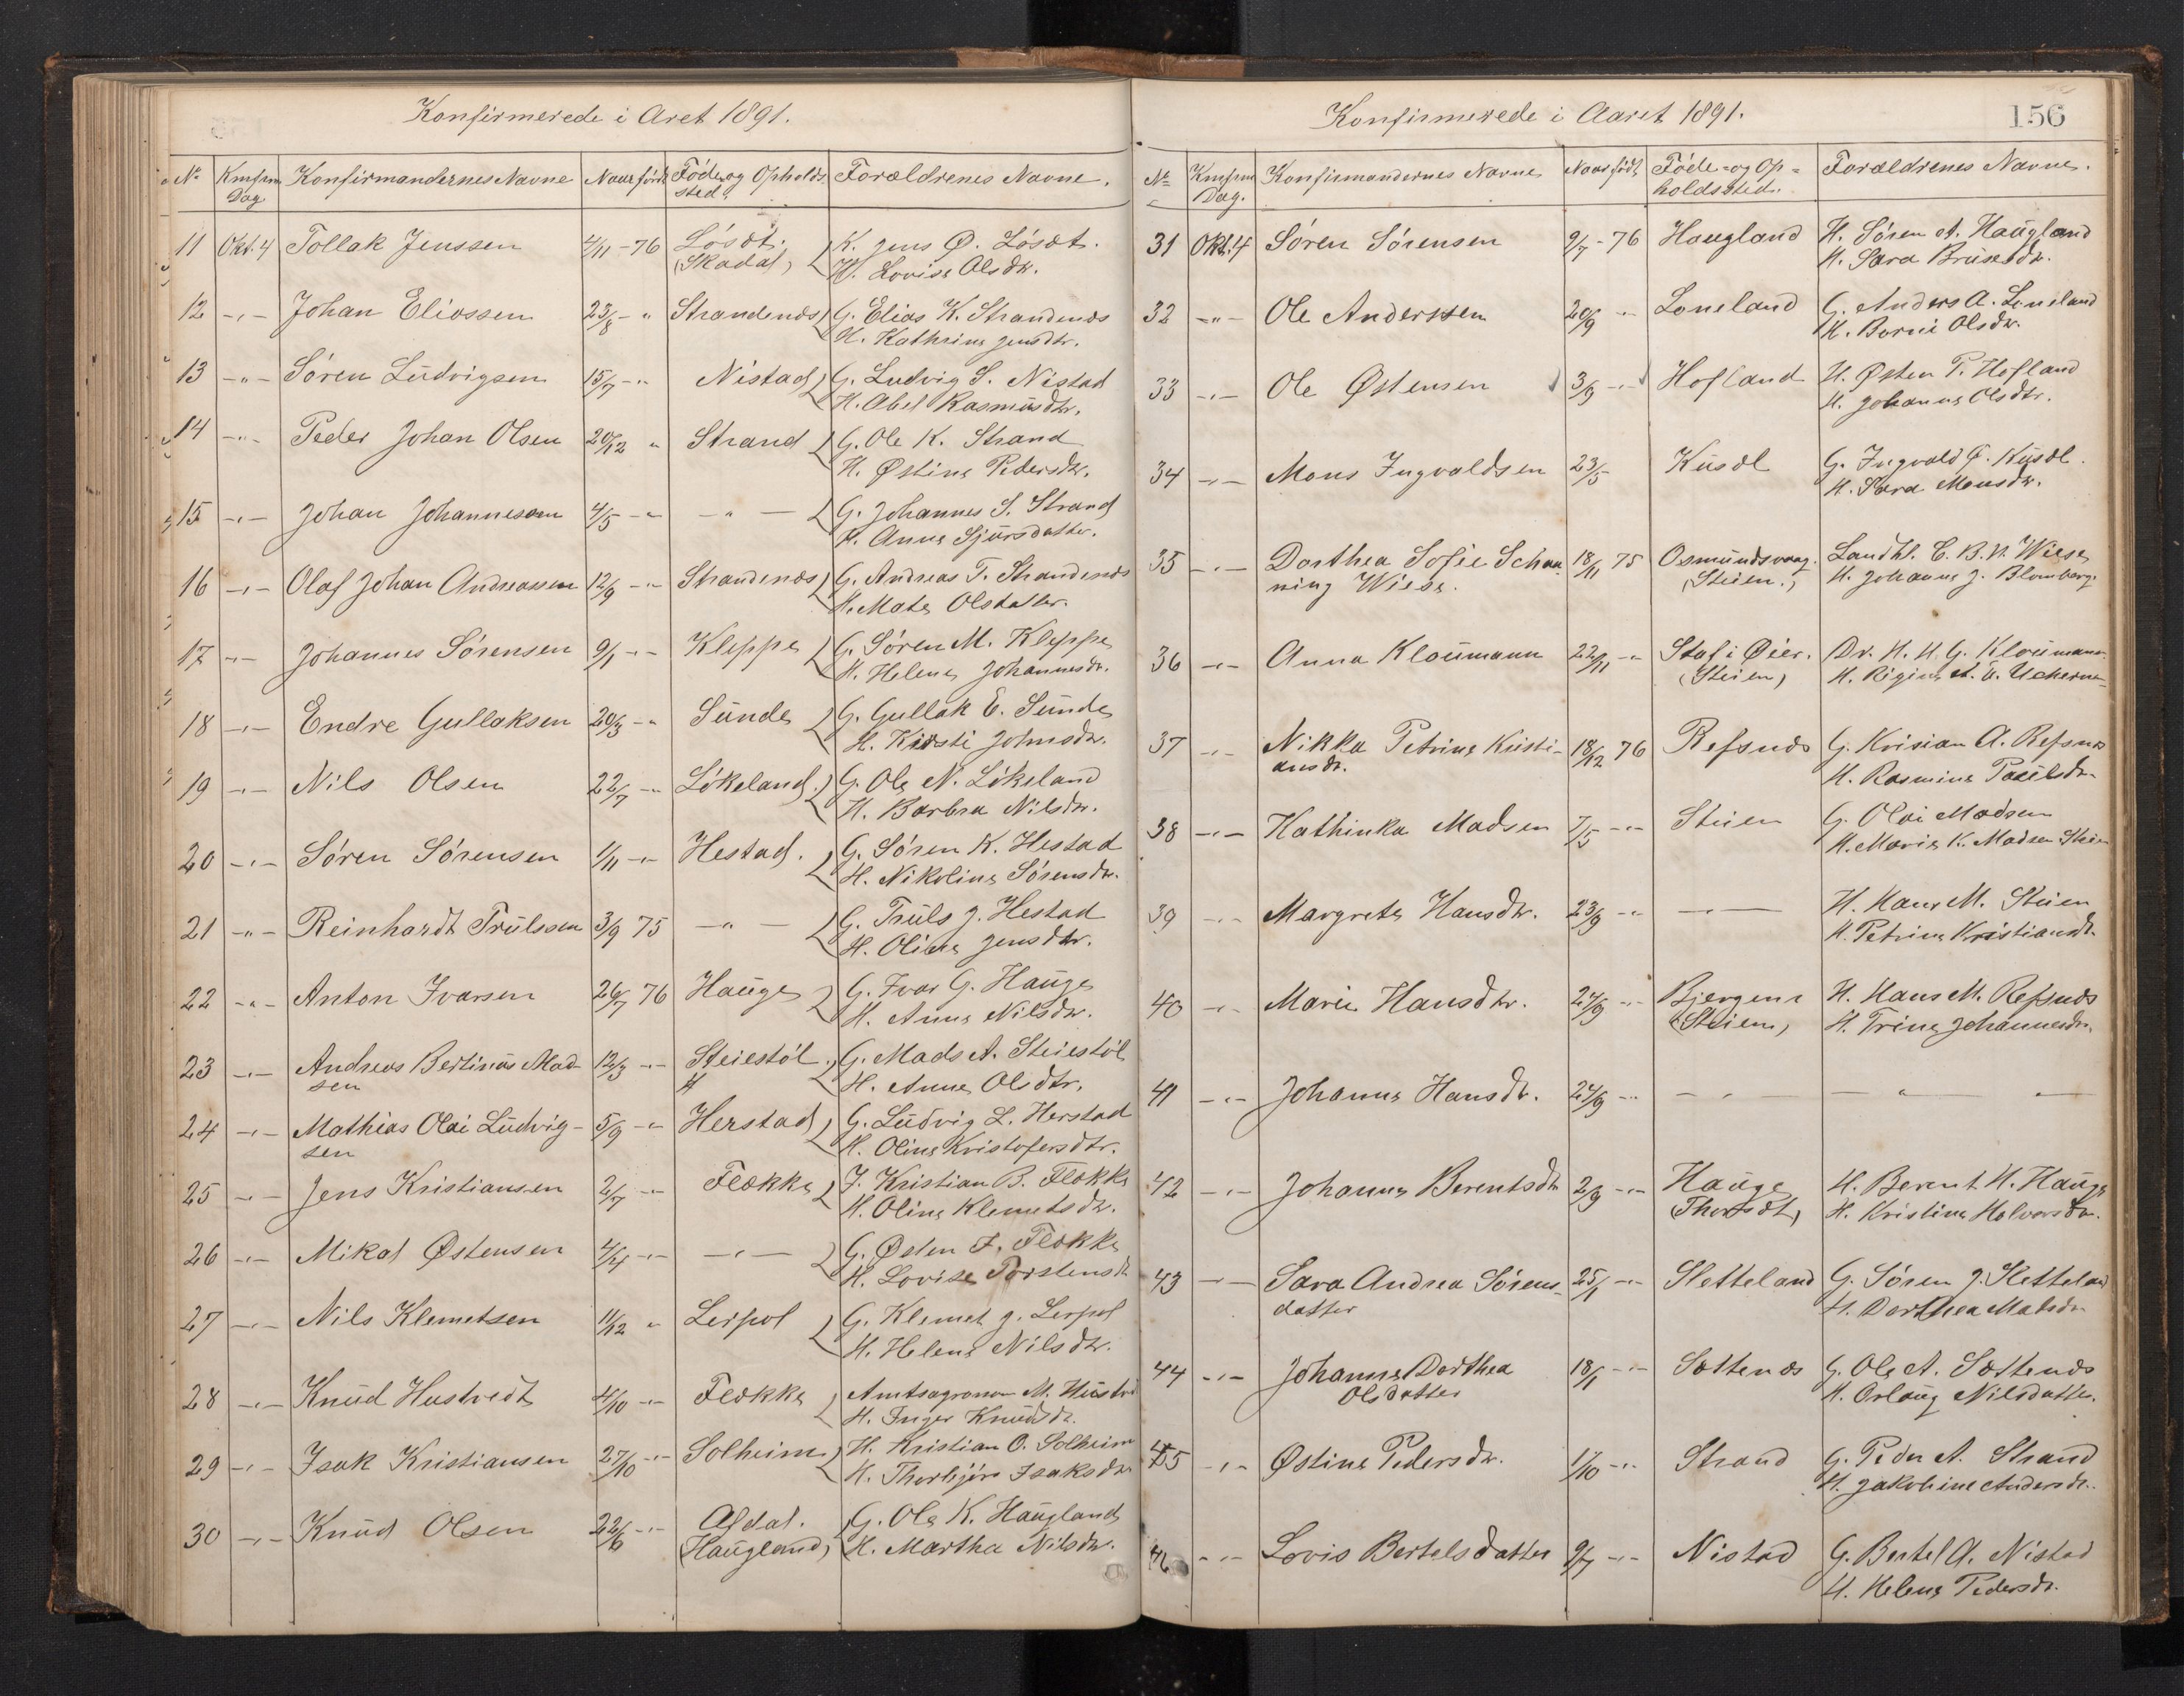 Konfirmerede i Aret 1891.
No Knfrm Dag Konfirmandernes Navne Naar født Føde og Opholds sted. Forældrenes Navne.
11 Okt. 4 Tollak Jenssen 4/11 - 76 Løsæt. K. Jens Ø. Løsæt.
(Skadal) H. Lovise Olsdtr.
12 -„- Johan Eliassen 23/8 - „ Strandenæs G. Elias K. Strandenæs
H. Kathrine Jensdtr.
13 -„- Søren Ludvigsen 15/7 - „ Nistad G. Ludvig S. Nistad
H. Abel Rasmusdtr.
14 -„- Peder Johan Olsen 20/12 „ Strand G. Ole K. Strand
H. Østine Pedersdtr.
15 -„- Johan Johannesom 4/5 - „ -„- G. Johannes S. Strand
H. Anna Sjursdatter.
16 -„- Olaf Johan Andreassen 12/9 - „ Strandenæs G. Andreas T. Strandenæs
H. Mate Olsdatter.
17 -„- Johannes Sørensen 9/1 - „ Kleppe G. Søren M. Kleppe
H. Helene Johannesdr.
18 -„- Endre Gullaksen 20/3 - „ Sunde G. Gullak E. Sunde
H. Kirsti Johnsdtr.
19 -„- Nils Olsen 22/7 - „ Løkeland. G. Ole N. Løkeland
H. Barbra Nilsdtr.
20 -„- Søren Sørensen 1/11 - „ Hestad. G. Søren K. Hestad
H. Nikoline Sørensdtr.
21 -„- Reinhardt Trulssen 3/9 75 -„- G. Truls J. Hestad
H. Oline Jensdtr.
22 -„- Anton Ivarsen 26/7 76 Hauge G. Ivar G. Hauge
H. Anne Nilsdtr.
23 -„- Andreas Bertinus Mad- 12/3 - „ Steiestøl G. Mads A. Steiestøl
sen H. Anne Olsdtr.
24 -„- Mathias Olai Ludvig- 5/9 - „ Herstad G. Ludvig L. Herstad
sen H. Oline Kristofersdtr.
25 -„- Jens Kristiansen 2/7 - „ Flokke J. Kristian B. Flokke
H. Oline Klemetsdtr.
26 -„- Mikal Østensen 4/4 - „ -„- G. Østen J. Flokke
H. Lovise Torstensdt
27 -„- Nils Klemetsen 11/12 „ Leirpol G. Klemet J. Lerpol
H. Helene Nilsdtr.
28 -„- Knud Hustvedt 4/10 - „ Flokke Amtsagronom M. Hustve
H. Inger Knudsdtr.
29 -„- Isak Kristiansen 27/10 - „ Solheim H. Kristian O. Solheim
H. Thorbjør Isaksdtr
30 -„- Knud Olsen 22/6 - „ Aldal. G. Ole K. Haugland
(Haugland) H. Martha Nilsdtr.
Konfirmerede i Aaret 1891.
156
No Knfrm Dag. Konfirmandernes Navne Naar født Føde- og Op- holdssted. Forældrenes Navne.
31 Okt. 4 Søren Sørensen 9/7 - 76 Haugland H. Søren A. Haugland
H. Sara Brusesdtr.
32 -„- Ole Anderssen 20/9 „ Loneland G. Anders A. Loneland
H. Borni Olsdtr.
33 -„- Ole Østensen 3/9 - „ Hofland H. Østen P. Hofland
H. Johanne Olsdtr.
34 -„- Mons Ingvaldsen 23/5 Kusdl G. Ingvald Ø. Kusdl.
H. Sara Monsdtr.
35 -„- Dorthea Sofie Schan 18/11 75 Osmundsvaag. Landhl. C. B. V. Wiese
ning Wiese. (Steien.) H. Johanne J. Blomberg.
36 -„- Anna Kloumann 22/11 - „ Staf i Øier. Dr. H. H. G. Kloumann
(Steien)
37 -„- Nikka Petrine Kristi- 18/12 76 Refsnæs G. Krisian A. Refsnæs
ansdr. H. Rasmine Paulsdtr.
38 -„- Kathinka Madsen 7/5 - „ Steien G. Olai Madsen
H. Marie K. Madsen Steien
39 -„- Margrete Hansdtr. 23/9 - „ -„- H. Hans M. Steien
H. Petrine Kristiansdt.
40 -„- Marie Hansdtr. 24/9 - „ Bjergene H. Hans M. Refsnæs
(Steien) H. Trine Johannesdtr.
41 -„- Johanne Hansdtr. 24/9 - „ -„- -„-
42 -„- Johanne Berentsdtr 2/9 - „ Hauge H. Berent H. Hauge
H. Kristine Halvorsdtr.
43 -„- Sara Andrea Sørens- 25/1 - „ Sletteland G. Søren J. Sletteland
datter H. Dorthea Matsdtr
44 -„- Johanne Dorthea 18/1 - „ Sottenæs G. Ole A. Sottenæs
Olsdatter H. Orlaug Nilsdatter.
45 -„- Østine Pedersdtr. 1/10 - „ Strand G. Peder A. Strand
H. Jakobine Andersdtr.
46 -„- Lovis Bertelsdatter 9/7 - „ Nistad G. Bertel A. Nistad
H. Helene Pedersdtr.